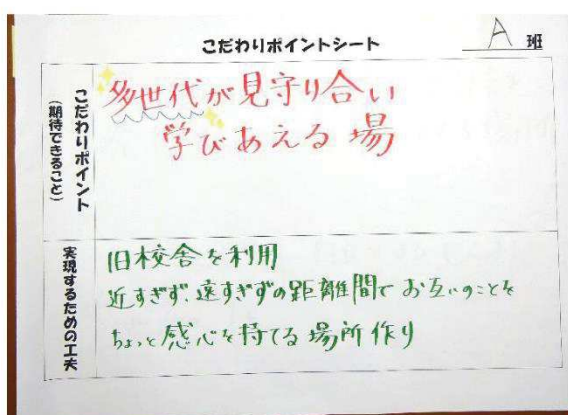 こだわりポイントシート
A 班
こだわりポイント
(期待できること)
多世代が見守り合い
学びあえる場
実現するための工夫
旧校舎を利用
近すぎず、遠すぎずの距離間でお互いのことを
ちょっと感心を持てる場所作り